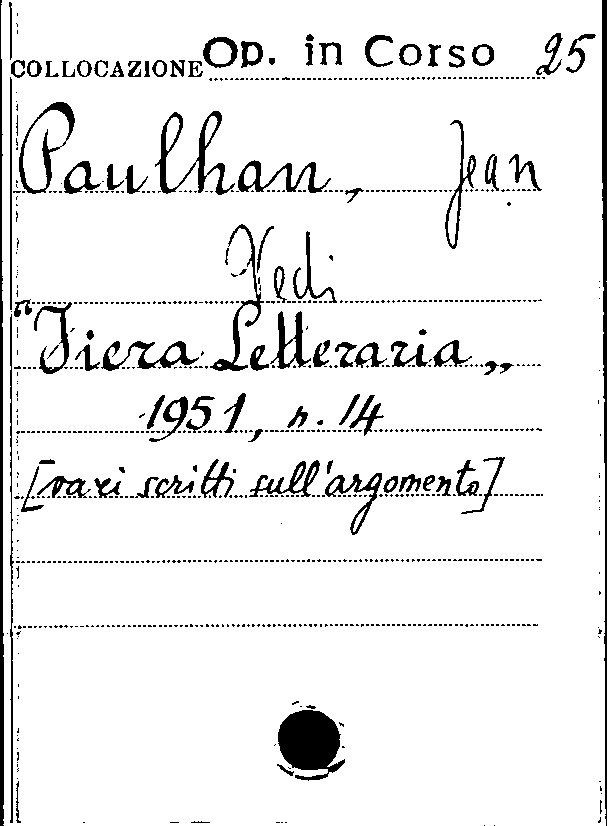 COLLOCAZIONE Op. in Corso 25
Paulhan, Jean
Vedi
"Fiera Letteraria„
1951, n. 14
[vari scritti sull'argomento]